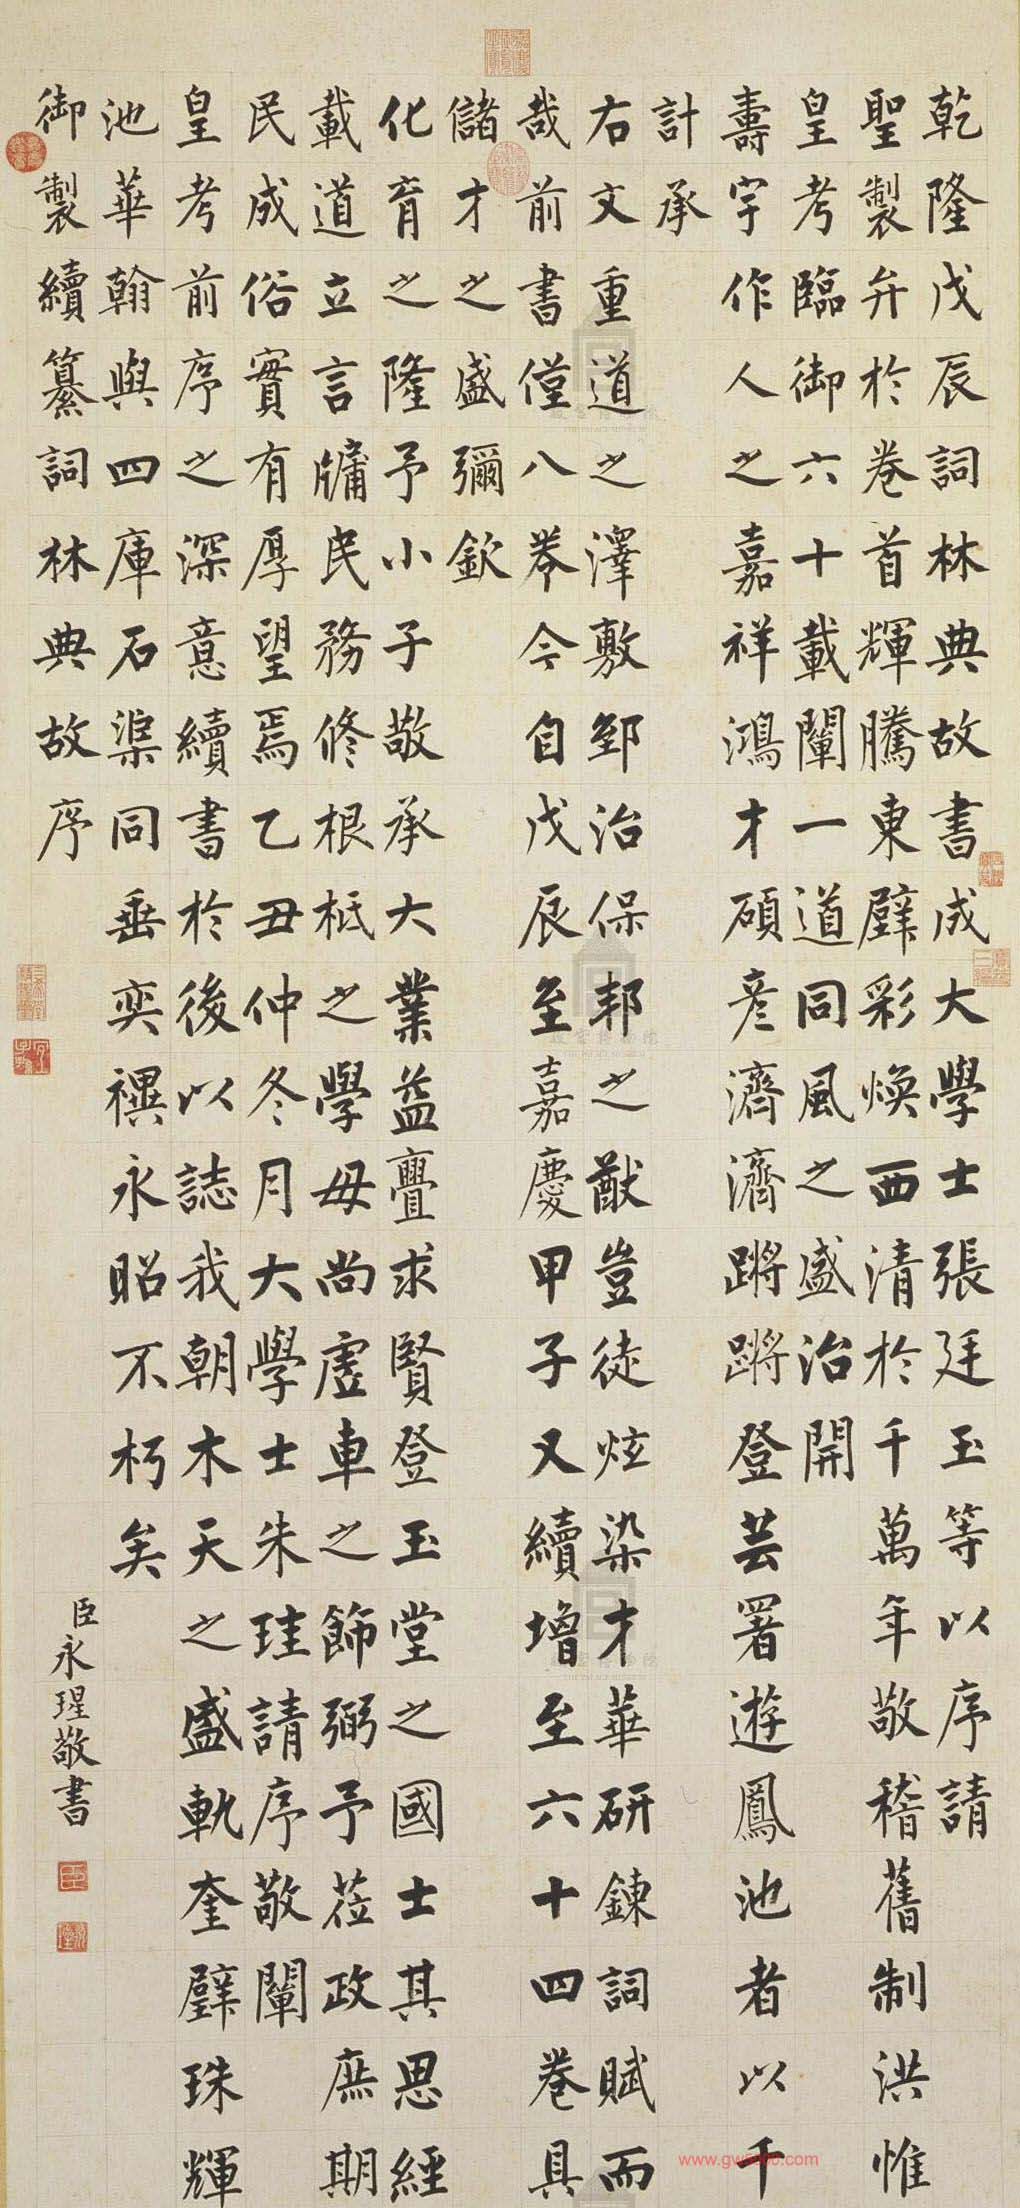 乾隆戊辰詞林典故書成大學士張廷玉等以序請
聖製弁於卷首輝騰東壁彩煥西清於千萬年敬稽舊制洪惟
皇考臨御六十載闡一道同風之盛治開
壽宇作人之嘉祥鴻才碩彥濟濟蹡蹡登芸署遊鳳池者以千
計承
右文重道之澤敷郅治保邦之猷豈徒炫染才華研鍊詞賦而
哉前書僅八卷今自戊辰至嘉慶甲子又續增至六十四卷具
儲才之盛彌欽
化育之隆予小子敬承大業益亹求賢登玉堂之國士其思經
載道立言牖民務修根柢之學毋尚虛車之飾弼予蒞政庶期
民成俗實有厚望焉乙丑仲冬月大學士朱珪請序敬闡
皇考前序之深意續書於後以誌我朝木天之盛軌奎壁珠輝
池華翰與四庫石渠同垂奕禩永昭不朽矣
御製續纂詞林典故序
臣永瑆敬書